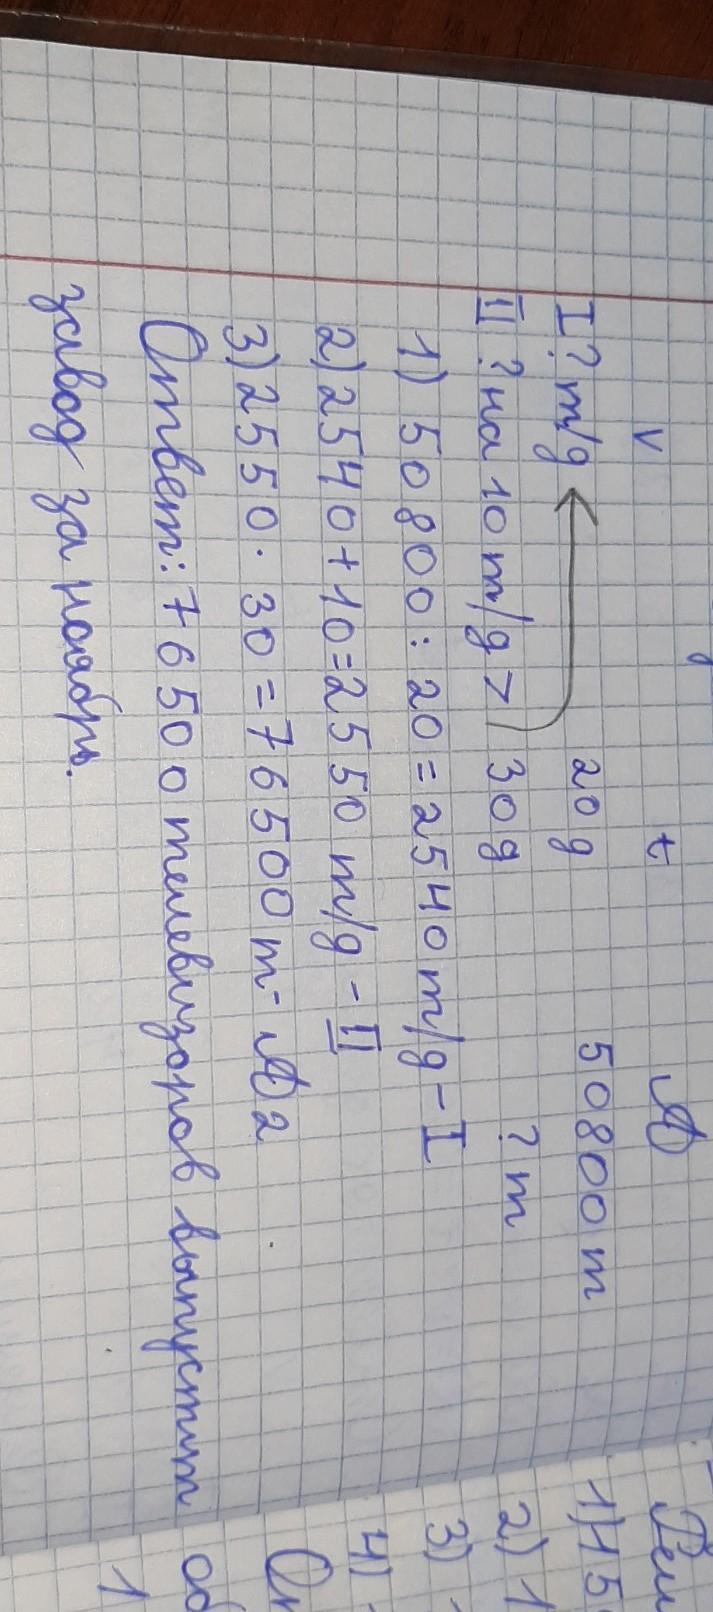 v t A
I ? т/д 20 д 50800 т
II ? на 10 т/д > 30 д ? т
1) 50800 : 20 = 2540 т/д - I
2) 2540 + 10 = 2550 т/д - II
3) 2550 · 30 = 76500 т - A2
Ответ: 76500 телевизоров выпустит
завод за ноябрь.
Реш
1) 15
2) 1
3)
4)
От
об
1